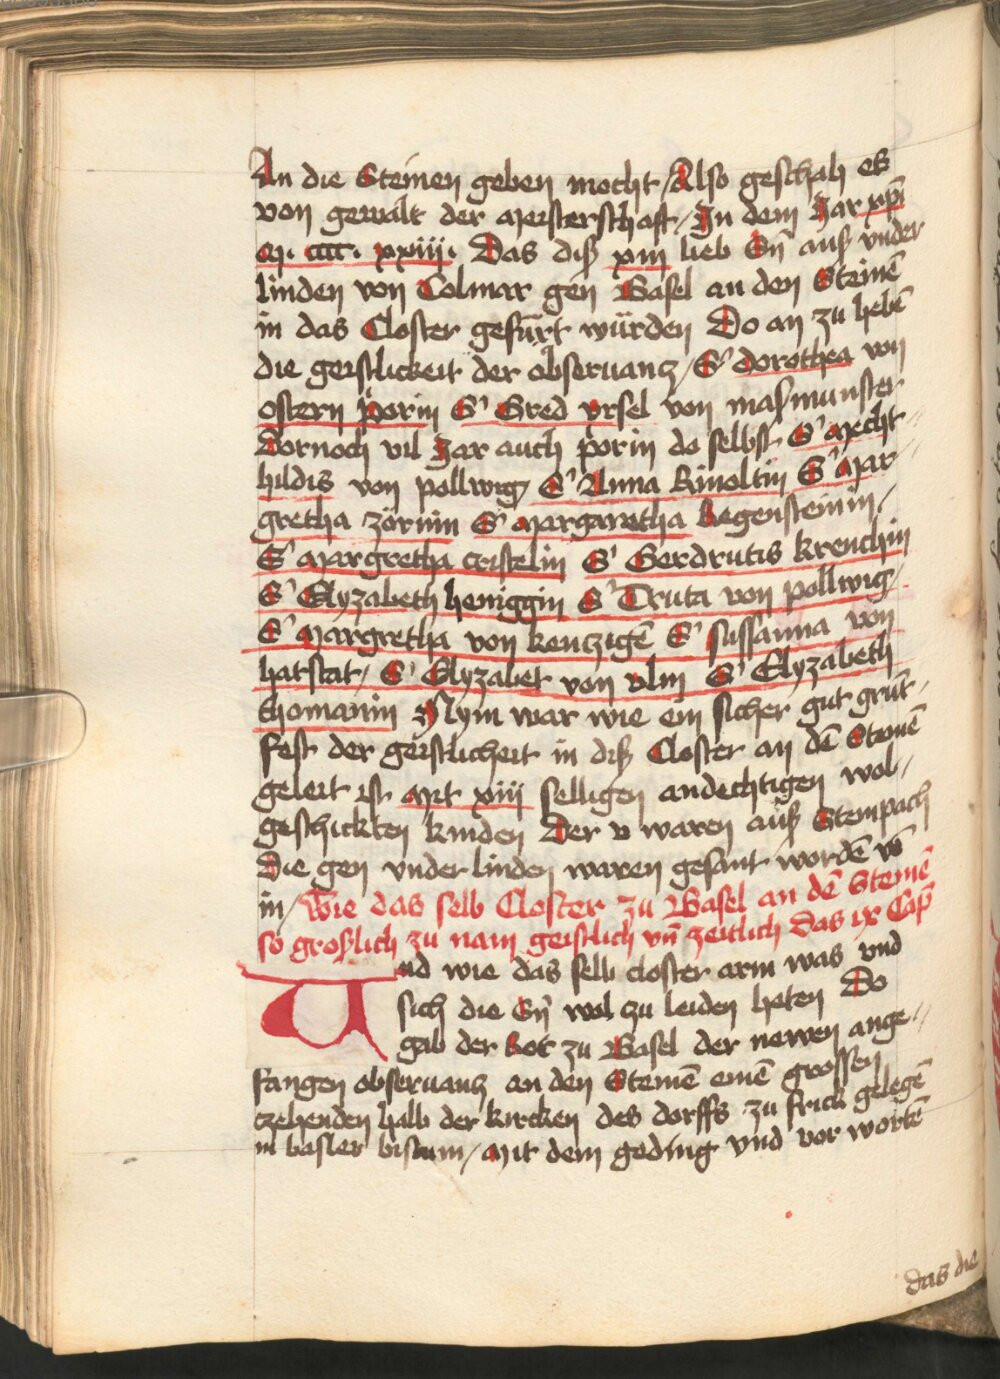 An die Steinen geben mocht / Also geschah es
von gewalt der meisterschaft / In dem Jar xpi
M. cccc. xxiiii. Das diß xiii lieb Sn̄ auß vnder
linden von Colmar gen Basel an den Steinē
in das Closter gefürt würden Do an zu hebē
die geistlickeit der obseruancz / S' dorothea von
ostern porin S' Gred vrsel von masmunster
Dornoch vil Jar auch porin do selbst S' Mecht
hildis von pollwig S' Anna Rinoltin S' Mar
gretha zörnin S' Margaretha Regensteinin /
S' Margretha cristelin S' Gerdrutis krenchin
S' Elyzabeth heniggin S' Truta von pollwig
S' Margretha von kenczigē S' sussanna von
hatstat / S' Elyzabet von vlm S' Elyzabeth
thomanin Nym war wie ein sicher gut grūt
fest der geistlicheit in diß Closter an dē Steinē
geleit ist Mit xiii selligen andechtigen wol /
geschickten kinden Der v waren auß Stempach
Die gen vnder linden waren gesant wordē vō
in / Wie das selb Closter zu Basel an dē Steinē
so großlich zu nam geistlich vn̄ zeitlich Das ix Cap̄
Und wie das selb closter arm was vnd
sich die Sn̄ wol zu leiden heten Do
gab der Rot zu Basel der newen ange
fangen obseruancz an den Steinē einē grossen
czehenden halb der kircken des dorffs zu frick gelegē
in basler bistum / Mit dem geding vnd vor wortē
das die